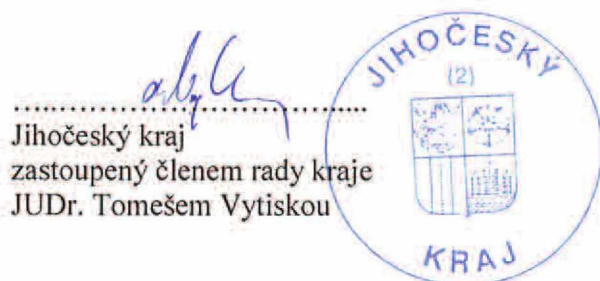 ..........................................
Jihočeský kraj
zastoupený členem rady kraje
JUDr. Tomešem Vytiskou
JIHOČESKÝ
(2)
KRAJ